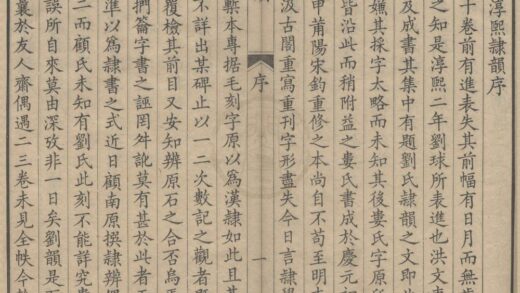 淳熙隸韻序
十卷前有進表失其前幅有日月而無
之知是淳熙二年劉球所表進也洪文
及成書其集中有題劉氏隸韻之文即
嫌其採字太略而未知其後婁氏字原
皆沿此而稍附益之婁氏書成於慶元
甲莆陽宋鈞重修之本尚自不苟至明
汲古閣重寫重刊字形盡失今日言隸
序
一
槧本專据毛刻字原以為漢隸如此且其
不詳出某碑止以一二次數記之觀者
覆檢其前目又安知辨原石之合否烏
捫籥字書之誣罔舛訛莫有甚於此者
準以為隸書之式近日顧南原撰隸辨
二而顧氏未知有劉氏此刻不能詳究
誤所自來莫由深攷非一日矣劉韻是
囊於友人齋偶遇二三卷未見全帙今